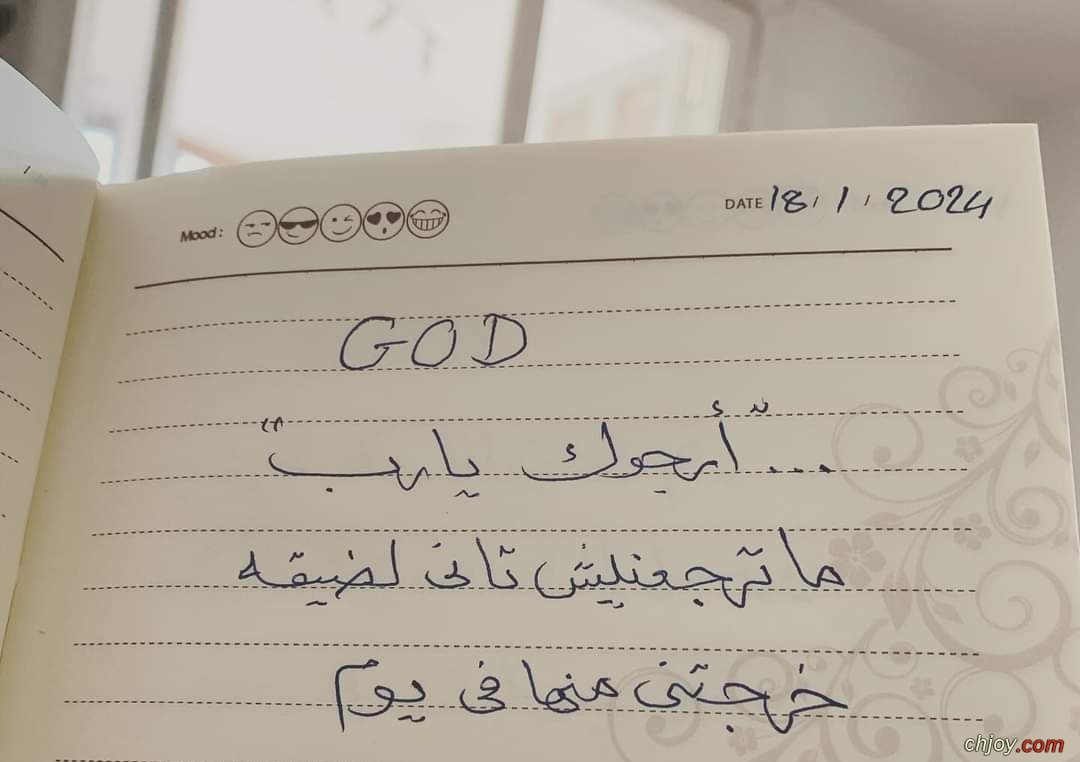 Mood :
DATE 18 / 1 / 2024
GOD
... "أرجوك يارب"
ما ترجعنيش تانى لضيقه
خرجتنى منها فى يوم
chjoy.com